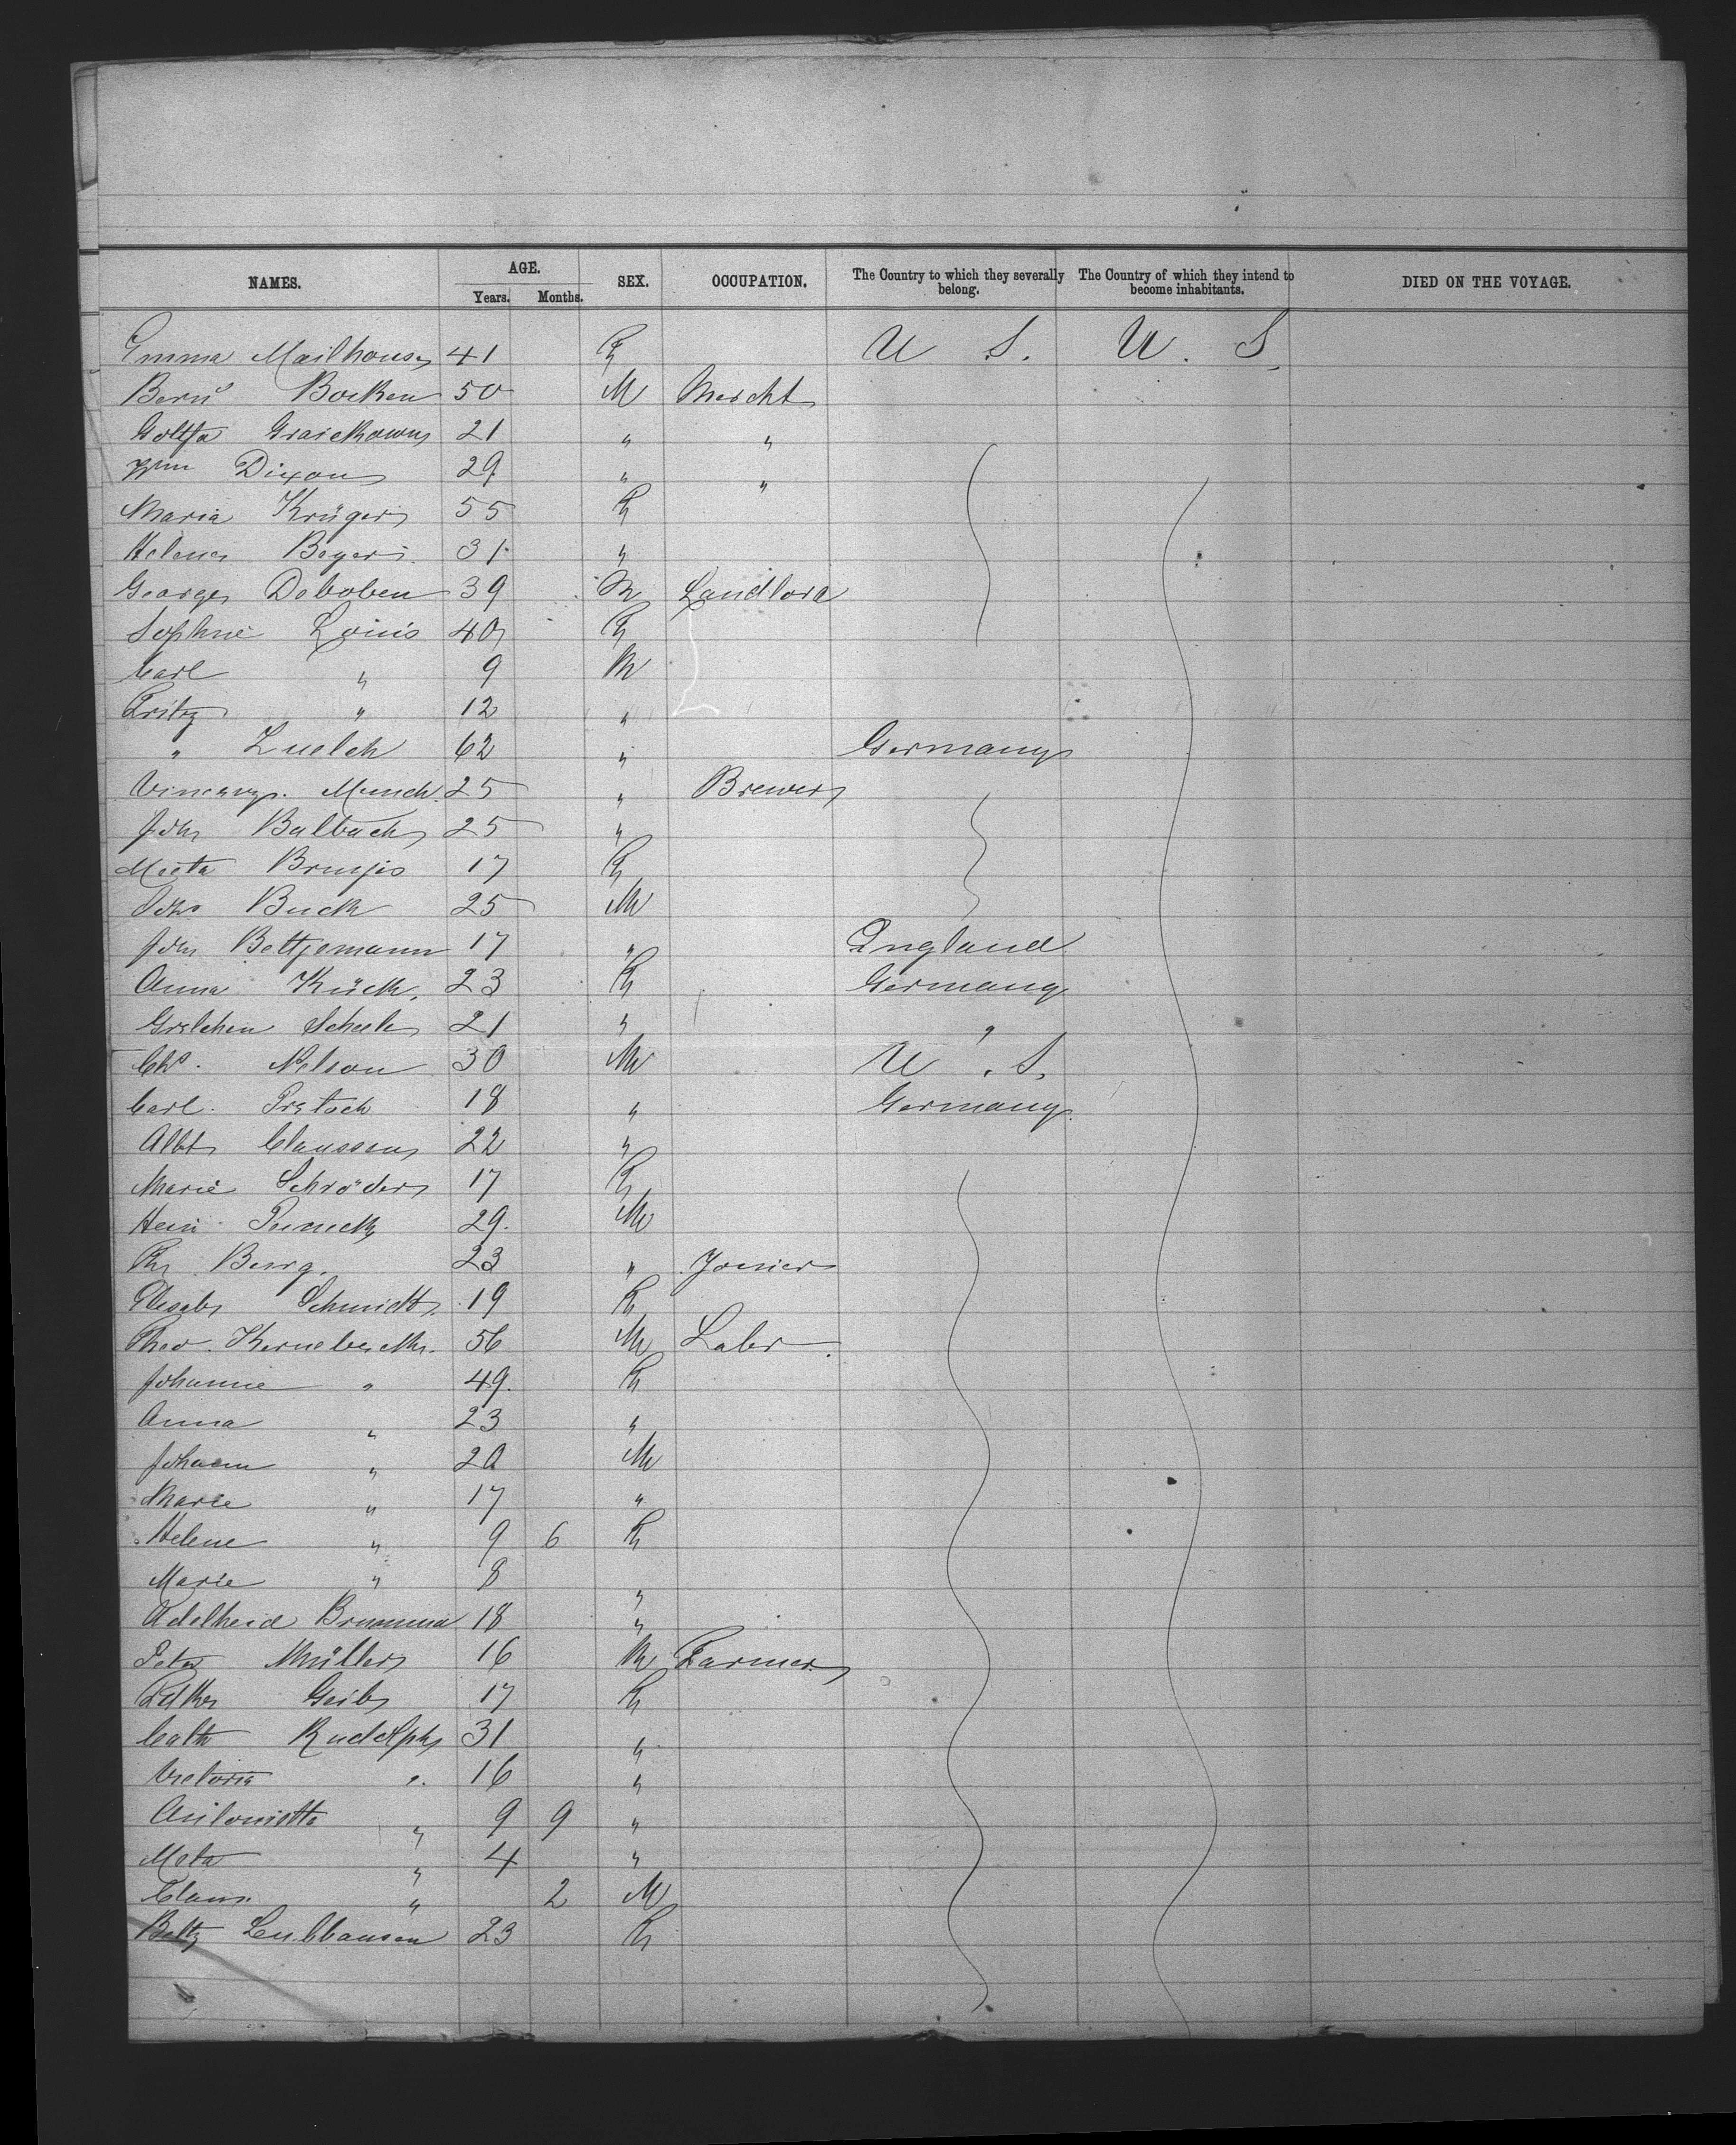 NAMES. AGE. Years. Months. SEX. OCCUPATION. The Country to which they severally belong. The Country of which they intend to become inhabitants. DIED ON THE VOYAGE.
Emma Mailhouse 41 F U S. U. S.
Bern Bocken 50 M Mercht
21 " "
Wm Dixon 29 " "
Maria Krüger 55 F
Helene Beyer 31 "
George Doboben 39 M Landlord
Sophie Louis 40 F
Carl " 9 M
Fritz " 12 "
" Luelch 62 " Germany
Munch 25 " Brewer
John Balbach 25 "
Meta Brunjes 17 F
Buck 25 M
John Bettjemann 17 " England
Anna Kück. 23 F Germany
Gretchen Scheele 21 " "
Chs. Nelson 30 M U. S.
Carl 18 " Germany
Albt Claussen 22 "
Marie Schröder 17 F
29. M
Berg. 23 " Joiner
Elisab Schmidt 19 F
Theo. 56 M Labr
Johanne " 49. F
Anna " 23 "
Johann " 20 M
Marie " 17 "
Helene " 9 6 F
Marie " 8 "
Adelheid Brumma 18 "
Peter Müller 16 M Farmer
Geib 17 F
Cath Rudolph 31 "
Victoria " 16 "
Antonietta " 9 9 "
Meta " 4 "
Claus. " 2 M
Betty 23 F